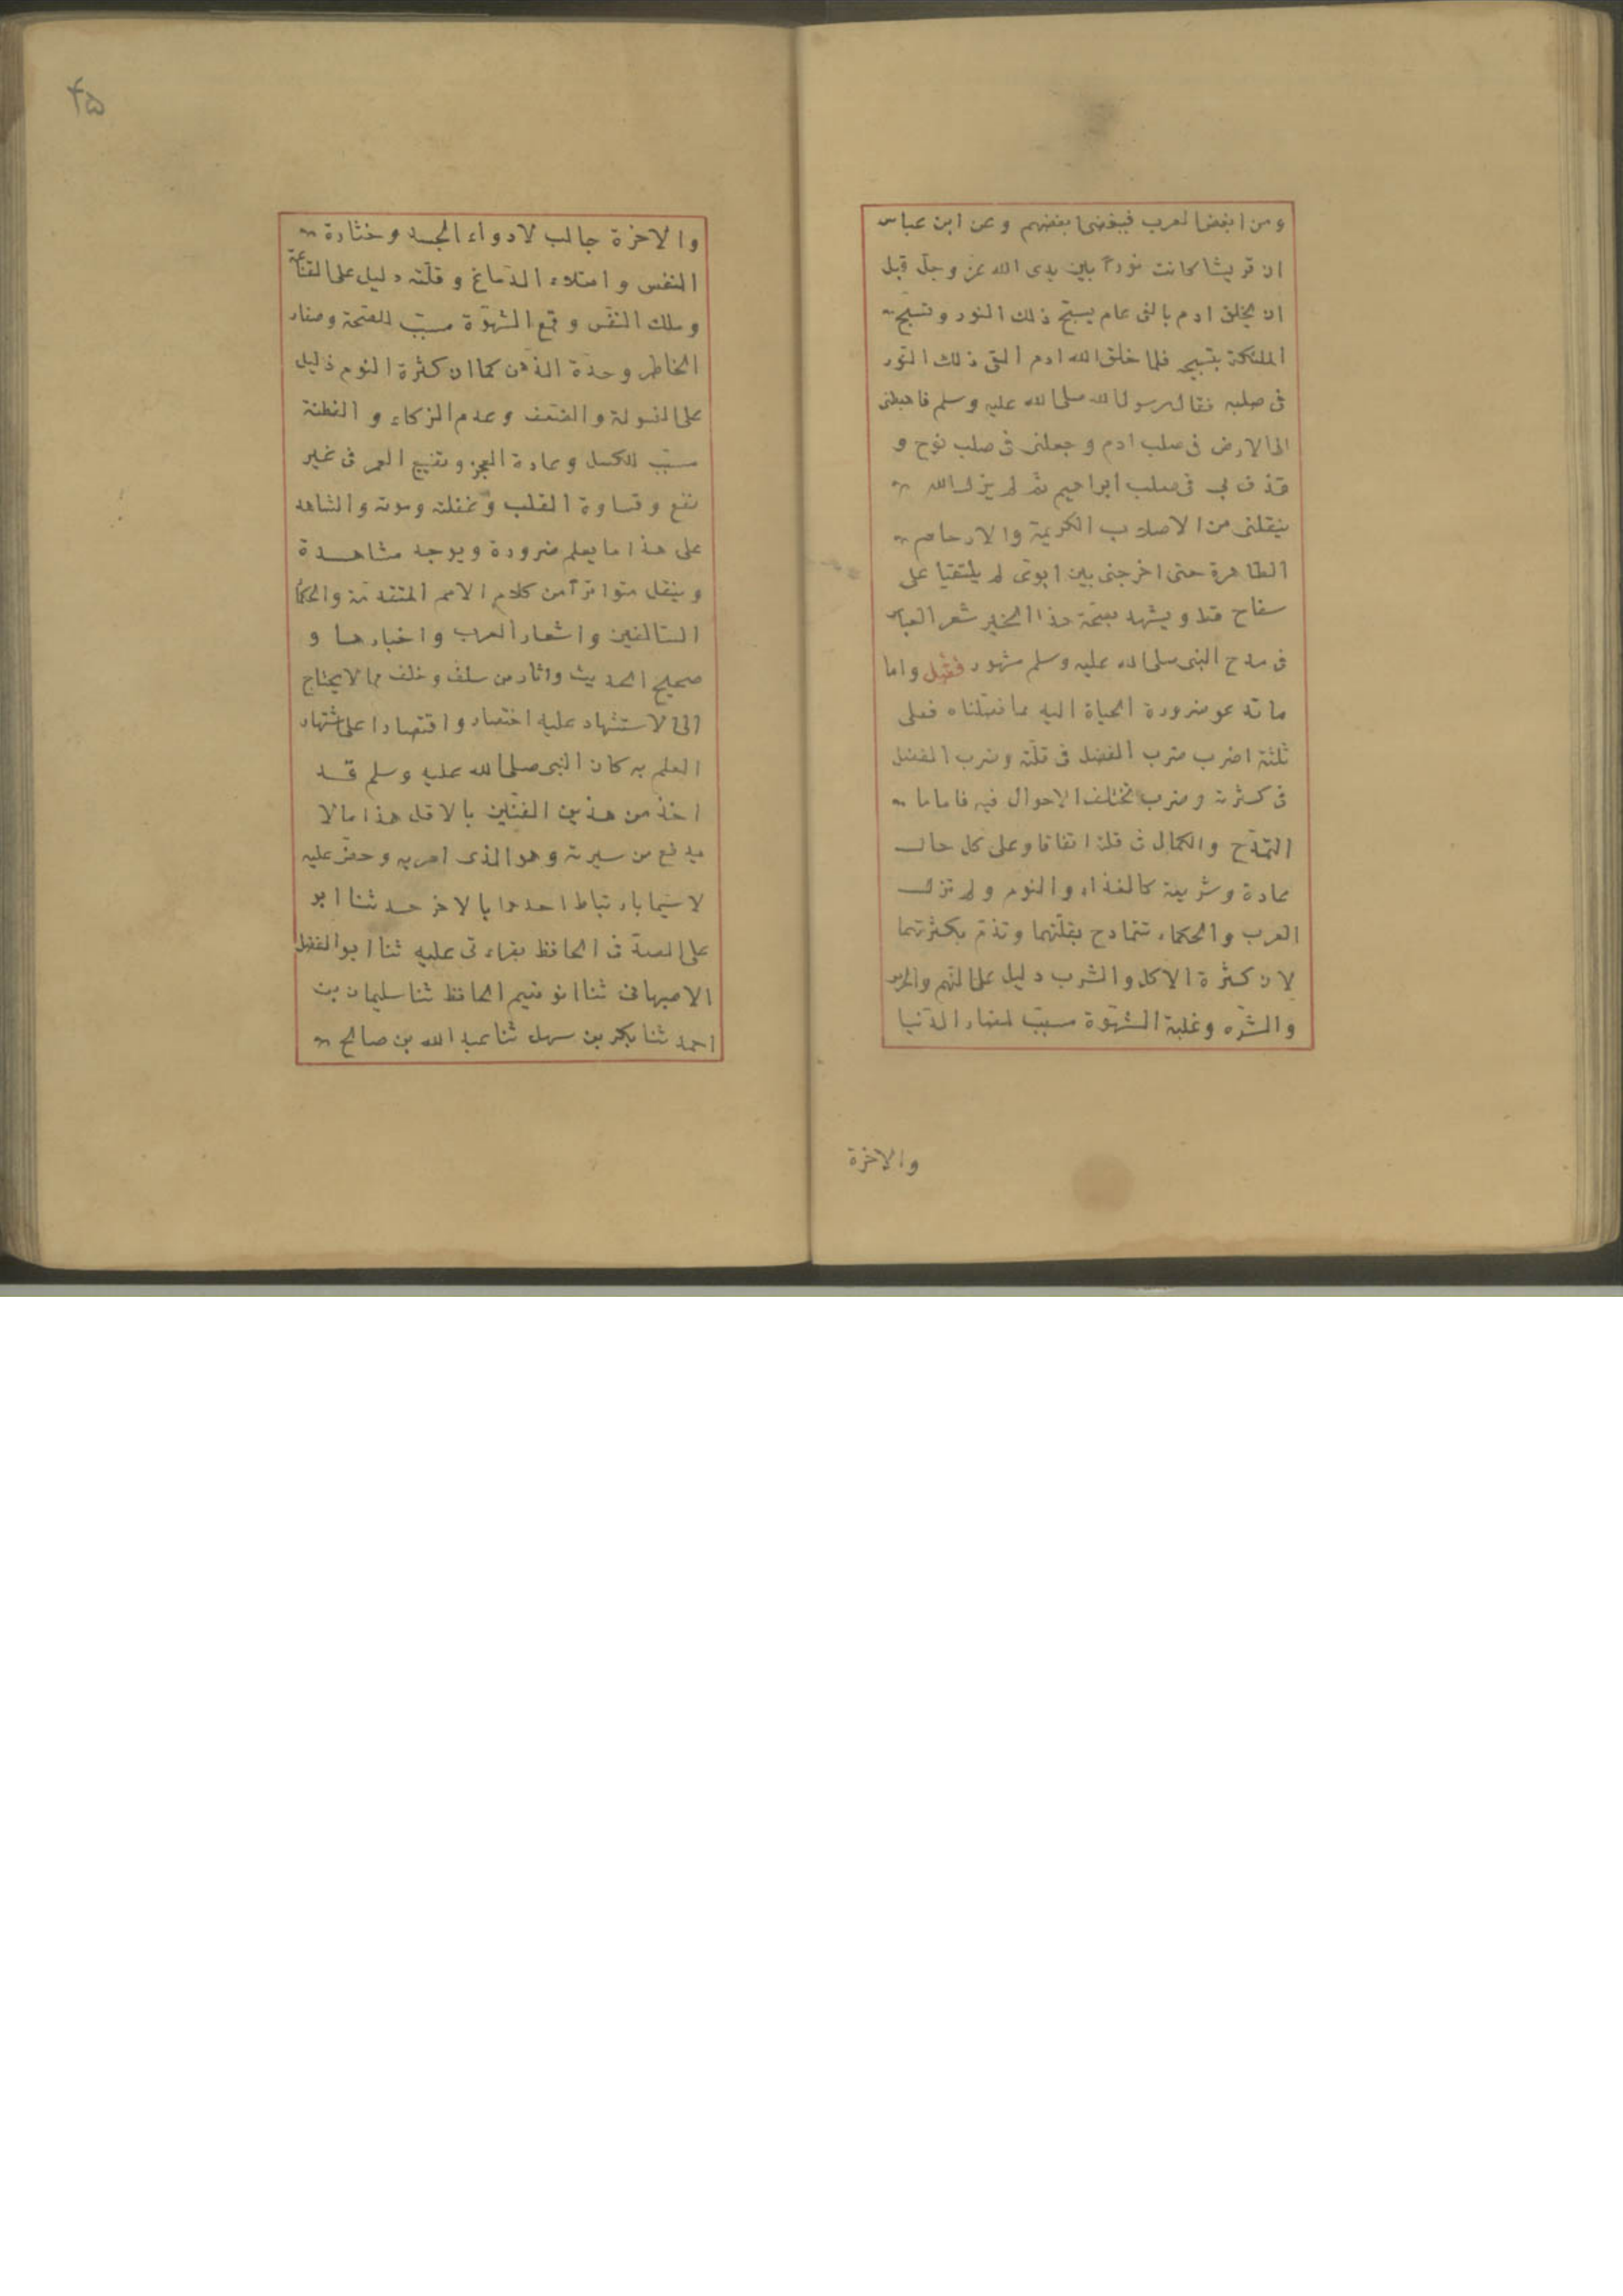 ومن ابغض العرب فببغضى ابغضهم وعن ابن عباس
ان قريشا كانت نورًا بين يدى الله عز وجلّ قبل
ان يخلق ادم بالفى عام يسبّح ذلك النور وتسبّح
الملئكة بتسبيحه فلما خلق الله ادم القى ذلك النّور
فى صلبه فقال رسول الله صلى الله عليه وسلم فاهبطنى
الى الارض فى صلب ادم وجعلنى فى صلب نوح و
قذف بى فى صلب ابراهيم ثم لم يزل الله
ينقلنى من الاصلاب الكريمة والارحام
الطاهرة حتى اخرجنى بين ابوىّ لم يلتقيا على
سفاح قط ويشهد بصحّة هذا الخبر شعر العباس
فى مدح النبى صلى الله عليه وسلم مشهور فصل واما
ما تدعو ضرورة الحياة اليه مما فصّلناه فعلى
ثلثة اضرب ضرب الفضل فى قلّته وضرب الفضل
فى كثرته وضرب تختلف الاحوال فيه فاما ما
التمدّح والكمال فى قلته اتفاقا وعلى كل حال
عادة وشريعة كالغذاء والنوم ولم تزل
العرب والحكماء تتمادح بقلّتهما وتذمّ بكثرتهما
لان كثرة الاكل والشرب دليل على النّهم والحرص
والشّره وغلبة الشّهوة مسبّب لمضار الدّنيا
والاخرة
۴۵
والاخرة جالب لادواء الجسد وخثارة
النفس وامتلاء الدّماغ وقلّته دليل على القناعة
وملك النفس وقمع الشهوة مسبّب للصحّة وصفاء
الخاطر وحدّة الذهن كما ان كثرة النوم دليل
على الفسولة والضعف وعدم الزكاء والفطنة
مسبّب للكسل وعادة العجز وتضييع العمر فى غير
نفع وقساوة القلب وغفلته وموته والشاهد
على هذا ما يعلم ضرورة ويوجد مشاهدة
وينقل متواترًا من كلام الامم المتقدّمة والحكماء
السّالفين واشعار العرب واخبارها و
صحيح الحديث واثار من سلف وخلف مما لا يحتاج
الى الاستشهاد عليه اختصارا واقتصارا على اشتهار
العلم به كان النبى صلى الله عليه وسلم قد
اخذ من هذين الفنّين بالاقل هذا ما لا
يدفع من سيرته وهو الذى امر به وحضّ عليه
لا سيّما بارتباط احدهما بالاخر حدثنا ابو
على الصدفى الحافظ بقراءتى عليه ثنا ابو الفضل
الاصبهانى ثنا ابو نعيم الحافظ ثنا سليمان بن
احمد ثنا بكر بن سهل ثنا عبد الله بن صالح